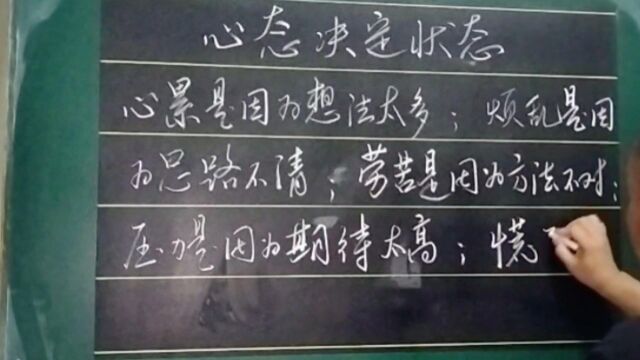 心态决定状态
心累是因为想法太多；烦乱是因
为思路不清；劳苦是因为方法不对；
压力是因为期待太高；慌